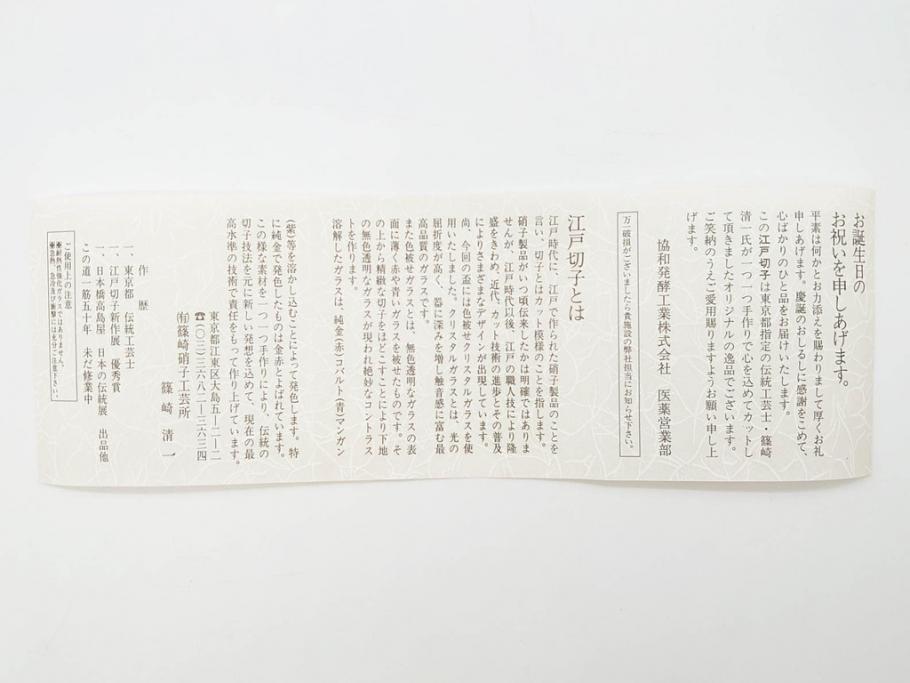 お誕生日の
お祝いを申しあげます。
平素は何かとお力添えを賜わりまして厚くお礼
申しあげます。慶誕のおしるしに感謝をこめて、
心ばかりのひと品をお届けいたします。
この江戸切子は東京都指定の伝統工芸士・篠崎
清一氏が一つ一つ手作りで心を込めてカットし
て頂きましたオリジナルの逸品でございます。
ご笑納のうえご愛用賜りますようお願い申し上
げます。
協和発酵工業株式会社 医薬営業部
万一破損がございましたら貴施設の弊社担当にお知らせ下さい。
江戸切子とは
江戸時代に、江戸で作られた硝子製品のことを
言い、切子とはカット模様のことを指します。
硝子製品がいつ頃伝来したかは明確ではありま
せんが、江戸時代以後、江戸の職人技により隆
盛をきわめ、近代、カット技術の進歩とその普及
によりさまざまなデザインが出現しています。
尚、今回の盃には色被せクリスタルガラスを使
用いたしました。クリスタルガラスとは、光の
屈折度が高く、器に深みを増し触音感に富む最
高品質のガラスです。
また色被せガラスとは、無色透明なガラスの表
面に薄く赤や青いガラスを被せたものです。そ
の上から精緻な切子をほどこすことにより下地
の無色透明なガラスが現われ絶妙なコントラス
トを作ります。
溶解したガラスは、純金(赤)コバルト(青)マンガン
(紫)等を溶かし込むことによって発色します。特
に純金で発色したものは金赤とよばれています。
この様な素材を一つ一つ手作りにより、伝統の
切子技法を元に新しい発想を込めて、現在の最
高水準の技術で責任をもって作り上げています。
東京都江東区大島五ー二ー一二
☎〇三(三六八二)二六三四
㈲篠崎硝子工芸所
篠崎清一
作歴
一、東京都 伝統工芸士
一、江戸切子新作展 優秀賞
一、日本橋高島屋 日本の伝統展 出品他
この道一筋五十年 未だ修業中
ご使用上の注意
※耐熱性強化ガラスではありません。
※急熱、急冷及び衝撃には充分ご注意下さい。